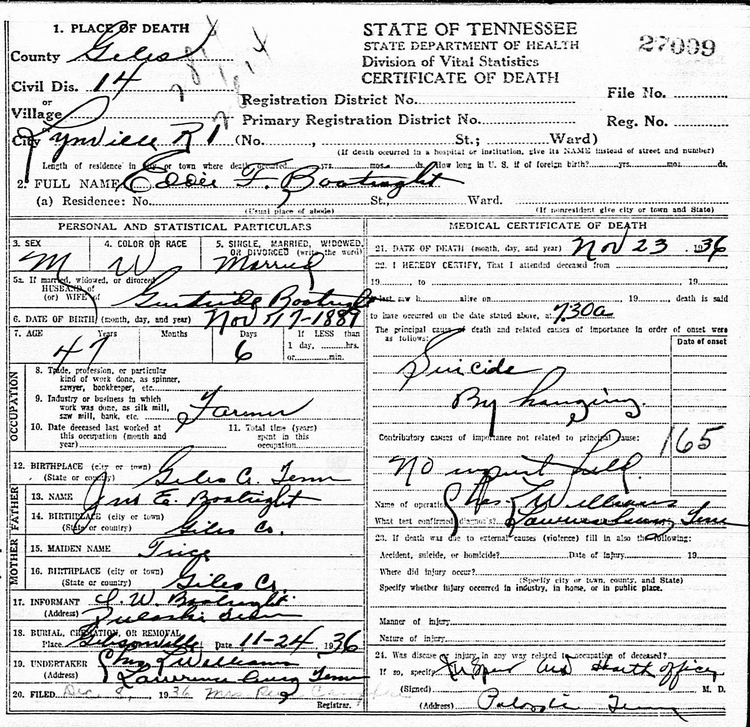 1. PLACE OF DEATH
County Giles
Civil Dis. 14
or
Village
or
City Lynville R 1
STATE OF TENNESSEE
STATE DEPARTMENT OF HEALTH
Division of Vital Statistics
CERTIFICATE OF DEATH
27009
Registration District No.
File No.
Primary Registration District No.
Reg. No.
(No. , St.; Ward)
(If death occurred in a hospital or institution, give its NAME instead of street and number)
Length of residence in city or town where death occurred yrs. mos. ds. How long in U. S. if of foreign birth? yrs. mos. ds.
2. FULL NAME Eddie F. Boatright
(a) Residence: No. St., Ward.
(Usual place of abode)
(If nonresident give city or town and State)
PERSONAL AND STATISTICAL PARTICULARS
3. SEX M
4. COLOR OR RACE W
5. SINGLE, MARRIED, WIDOWED, OR DIVORCED (write the word) Married
5a. If married, widowed, or divorced
HUSBAND of
(or) WIFE of Gertrude Boatright
6. DATE OF BIRTH (month, day, and year) Nov 17-1889
7. AGE Years Months Days If LESS than
1 day, hrs.
or min.
47 6
OCCUPATION
8. Trade, profession, or particular
kind of work done, as spinner,
sawyer, bookkeeper, etc.
9. Industry or business in which
work was done, as silk mill,
saw mill, bank, etc. Farmer
10. Date deceased last worked at
this occupation (month and
year)
11. Total time (years)
spent in this
occupation
12. BIRTHPLACE (city or town)
(State or country) Giles Co. Tenn
FATHER
13. NAME Jno E. Boatright
14. BIRTHPLACE (city or town)
(State or country) Giles Co.
MOTHER
15. MAIDEN NAME Trice
16. BIRTHPLACE (city or town)
(State or country) Giles Co
17. INFORMANT W. Boatright
(Address) Pulaski Tenn
18. BURIAL, CREMATION, OR REMOVAL
Place Date 11-24 1936
19. UNDERTAKER Chas Z Williams
(Address) Lawrenceburg Tenn
20. FILED Dec 8, 1936 Mrs
Registrar.
MEDICAL CERTIFICATE OF DEATH
21. DATE OF DEATH (month, day, and year) Nov 23 1936
22. I HEREBY CERTIFY, That I attended deceased from
19 to 19
I last saw h alive on 19 death is said
to have occurred on the date stated above, at 730a
The principal cause of death and related causes of importance in order of onset were
as follows:
Date of onset
Suicide
By hanging.
Contributory causes of importance not related to principal cause:
165
No held.
Chas Z Williams
Name of operation
What test confirmed diagnosis? Lawrenceburg Tenn
23. If death was due to external causes (violence) fill in also the following:
Accident, suicide, or homicide? Date of injury 19
Where did injury occur?
(Specify city or town, county, and State)
Specify whether injury occurred in industry, in home, or in public place.
Manner of injury
Nature of injury
24. Was disease or injury in any way related to occupation of deceased?
If so, specify Health officer
(Signed) M. D.
(Address) Pulaski Tenn